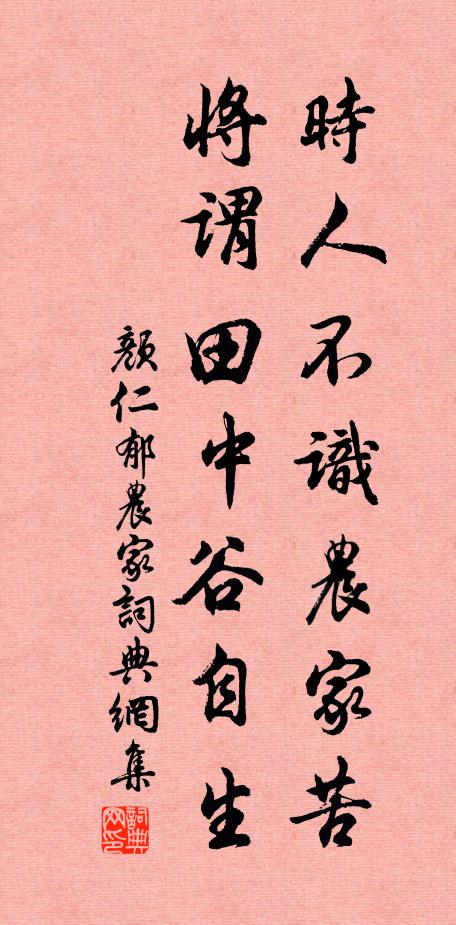 時人不識農家苦
將謂田中谷自生
顏仁郁農家詞典網集
詞典网印